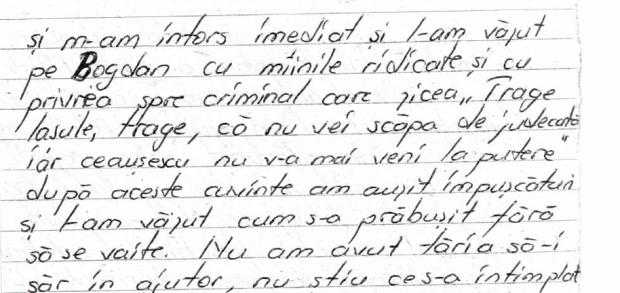 și m-am întors imediat și l-am văzut
pe Bogdan cu mîinile ridicate și cu
privirea spre criminal care zicea „Trage
lasule, trage, că nu vei scăpa de judecată
iar ceaușescu nu v-a mai veni la putere"
după aceste cuvinte am auzit împușcături
și l-am văzut cum s-a prăbușit fără
să se vaite. Nu am avut tăria să-i
sar în ajutor, nu știu ce s-a întîmplat